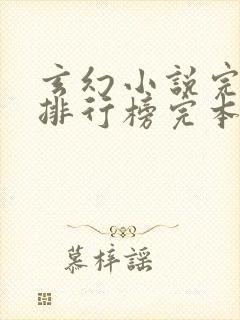 玄幻小說完
排行榜完本
慕梓謠